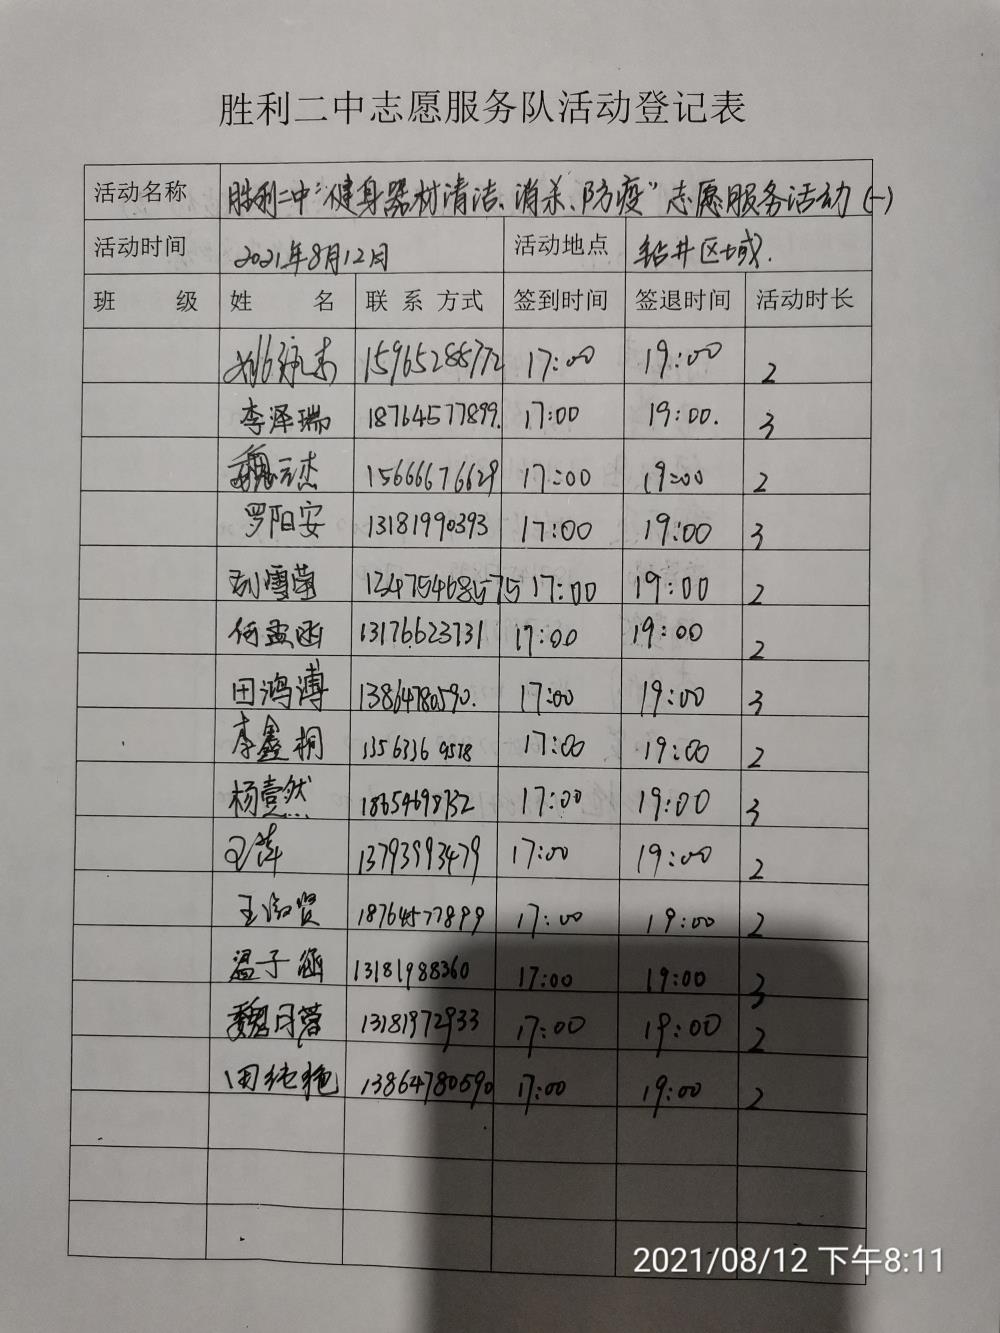 胜利二中志愿服务队活动登记表
活动名称 胜利二中“健身器材清洁、消杀、防疫”志愿服务活动(一)
活动时间 2021年8月12日 活动地点 钻井区域.
班 级 姓 名 联 系 方式 签到时间 签退时间 活动时长
15965288772 17:00 19:00 2
李泽瑞 18764577899. 17:00 19:00. 3
魏云杰 15666676629 17:00 19:00 2
罗阳安 13181990393 17:00 19:00 3
刘雪莹 17:00 19:00 2
何孟函 13176623731 17:00 19:00 2
田鸿溥 13864780590. 17:00 19:00 3
李鑫桐 13563369578 17:00 19:00 2
杨壹然 18654698732 17:00 19:00 3
王萍 13793993479 17:00 19:00 2
王淑贤 18764577899 17:00 19:00 2
温子涵 13181988360 17:00 19:00 3
魏月蓉 13181972933 17:00 19:00 2
田纯艳 13864780590 17:00 19:00 2
2021/08/12 下午8:11